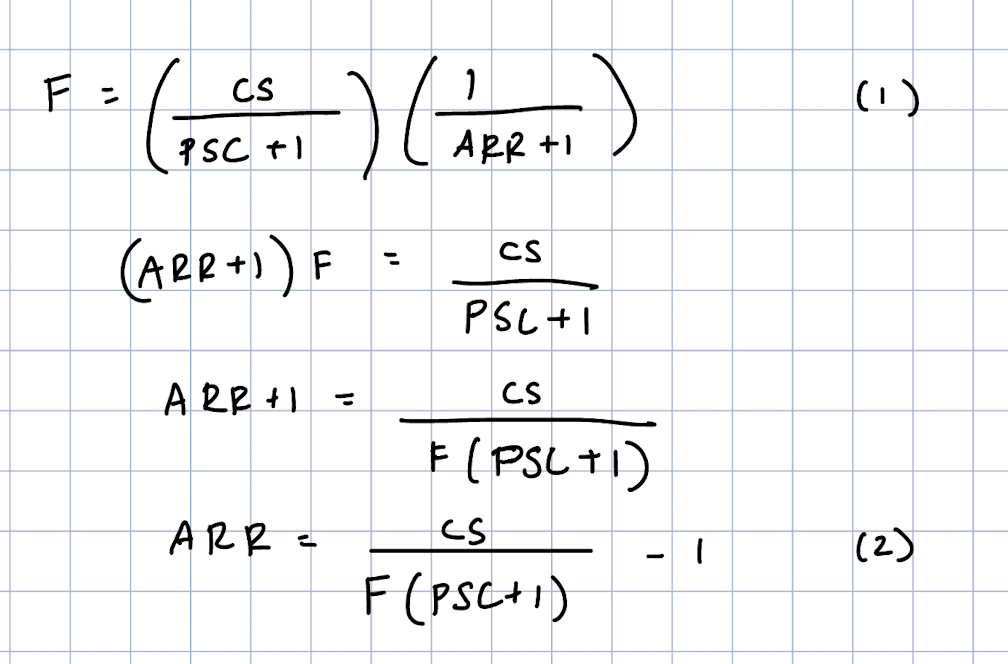 F = (CS / (PSC + 1)) (1 / (ARR + 1)) (1)
(ARR + 1) F = CS / (PSC + 1)
ARR + 1 = CS / (F (PSC + 1))
ARR = CS / (F (PSC + 1)) - 1 (2)